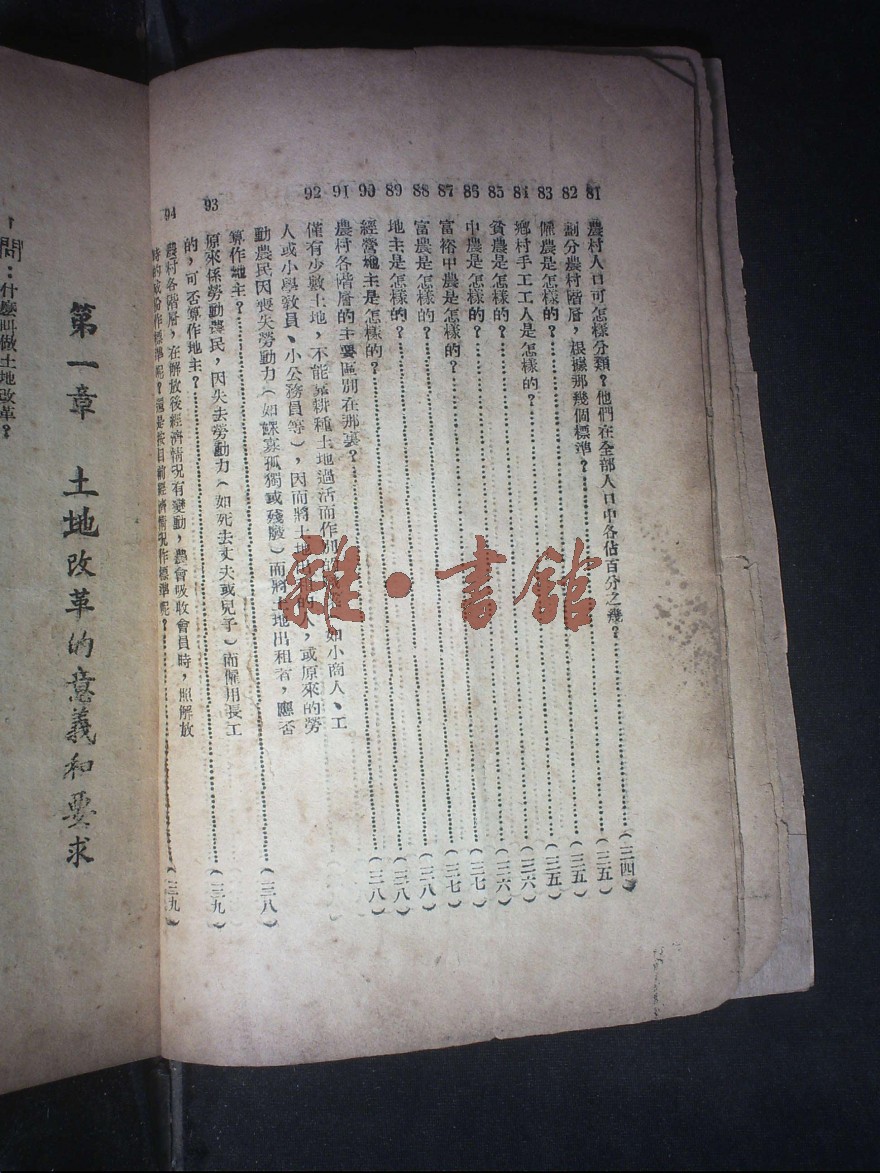 81 農村人口可怎樣分類？他們在全部人口中各佔百分之幾？（三四）
82 劃分農村階層，根據那幾個標準？（三五）
83 僱農是怎樣的？（三五）
84 鄉村手工工人是怎樣的？（三六）
85 貧農是怎樣的？（三六）
86 中農是怎樣的？（三七）
87 富裕中農是怎樣的？（三七）
88 富農是怎樣的？（三八）
89 地主是怎樣的？（三八）
90 經營地主是怎樣的？（三八）
91 農村各階層的主要區別在那裏？
92 僅有少數土地，不能靠耕種土地過活而作別的 如小商人、工
人或小學教員、小公務員等），因而將土地 人，或原來的勞
動農民因喪失勞動力（如鰥寡孤獨或殘廢）而將土地出租者，應否
算作地主？（三八）
93 原來係勞動農民，因失去勞動力（如死去丈夫或兒子）而僱用長工
的，可否算作地主？（三九）
94 農村各階層，在解放後經濟情況有變動，農會吸收會員時，照解放
時的成份作標準呢？還是按目前經濟情況作標準呢？（三九）
雜·書館
第一章 土地改革的意義和要求
問：什麼叫做土地改革？